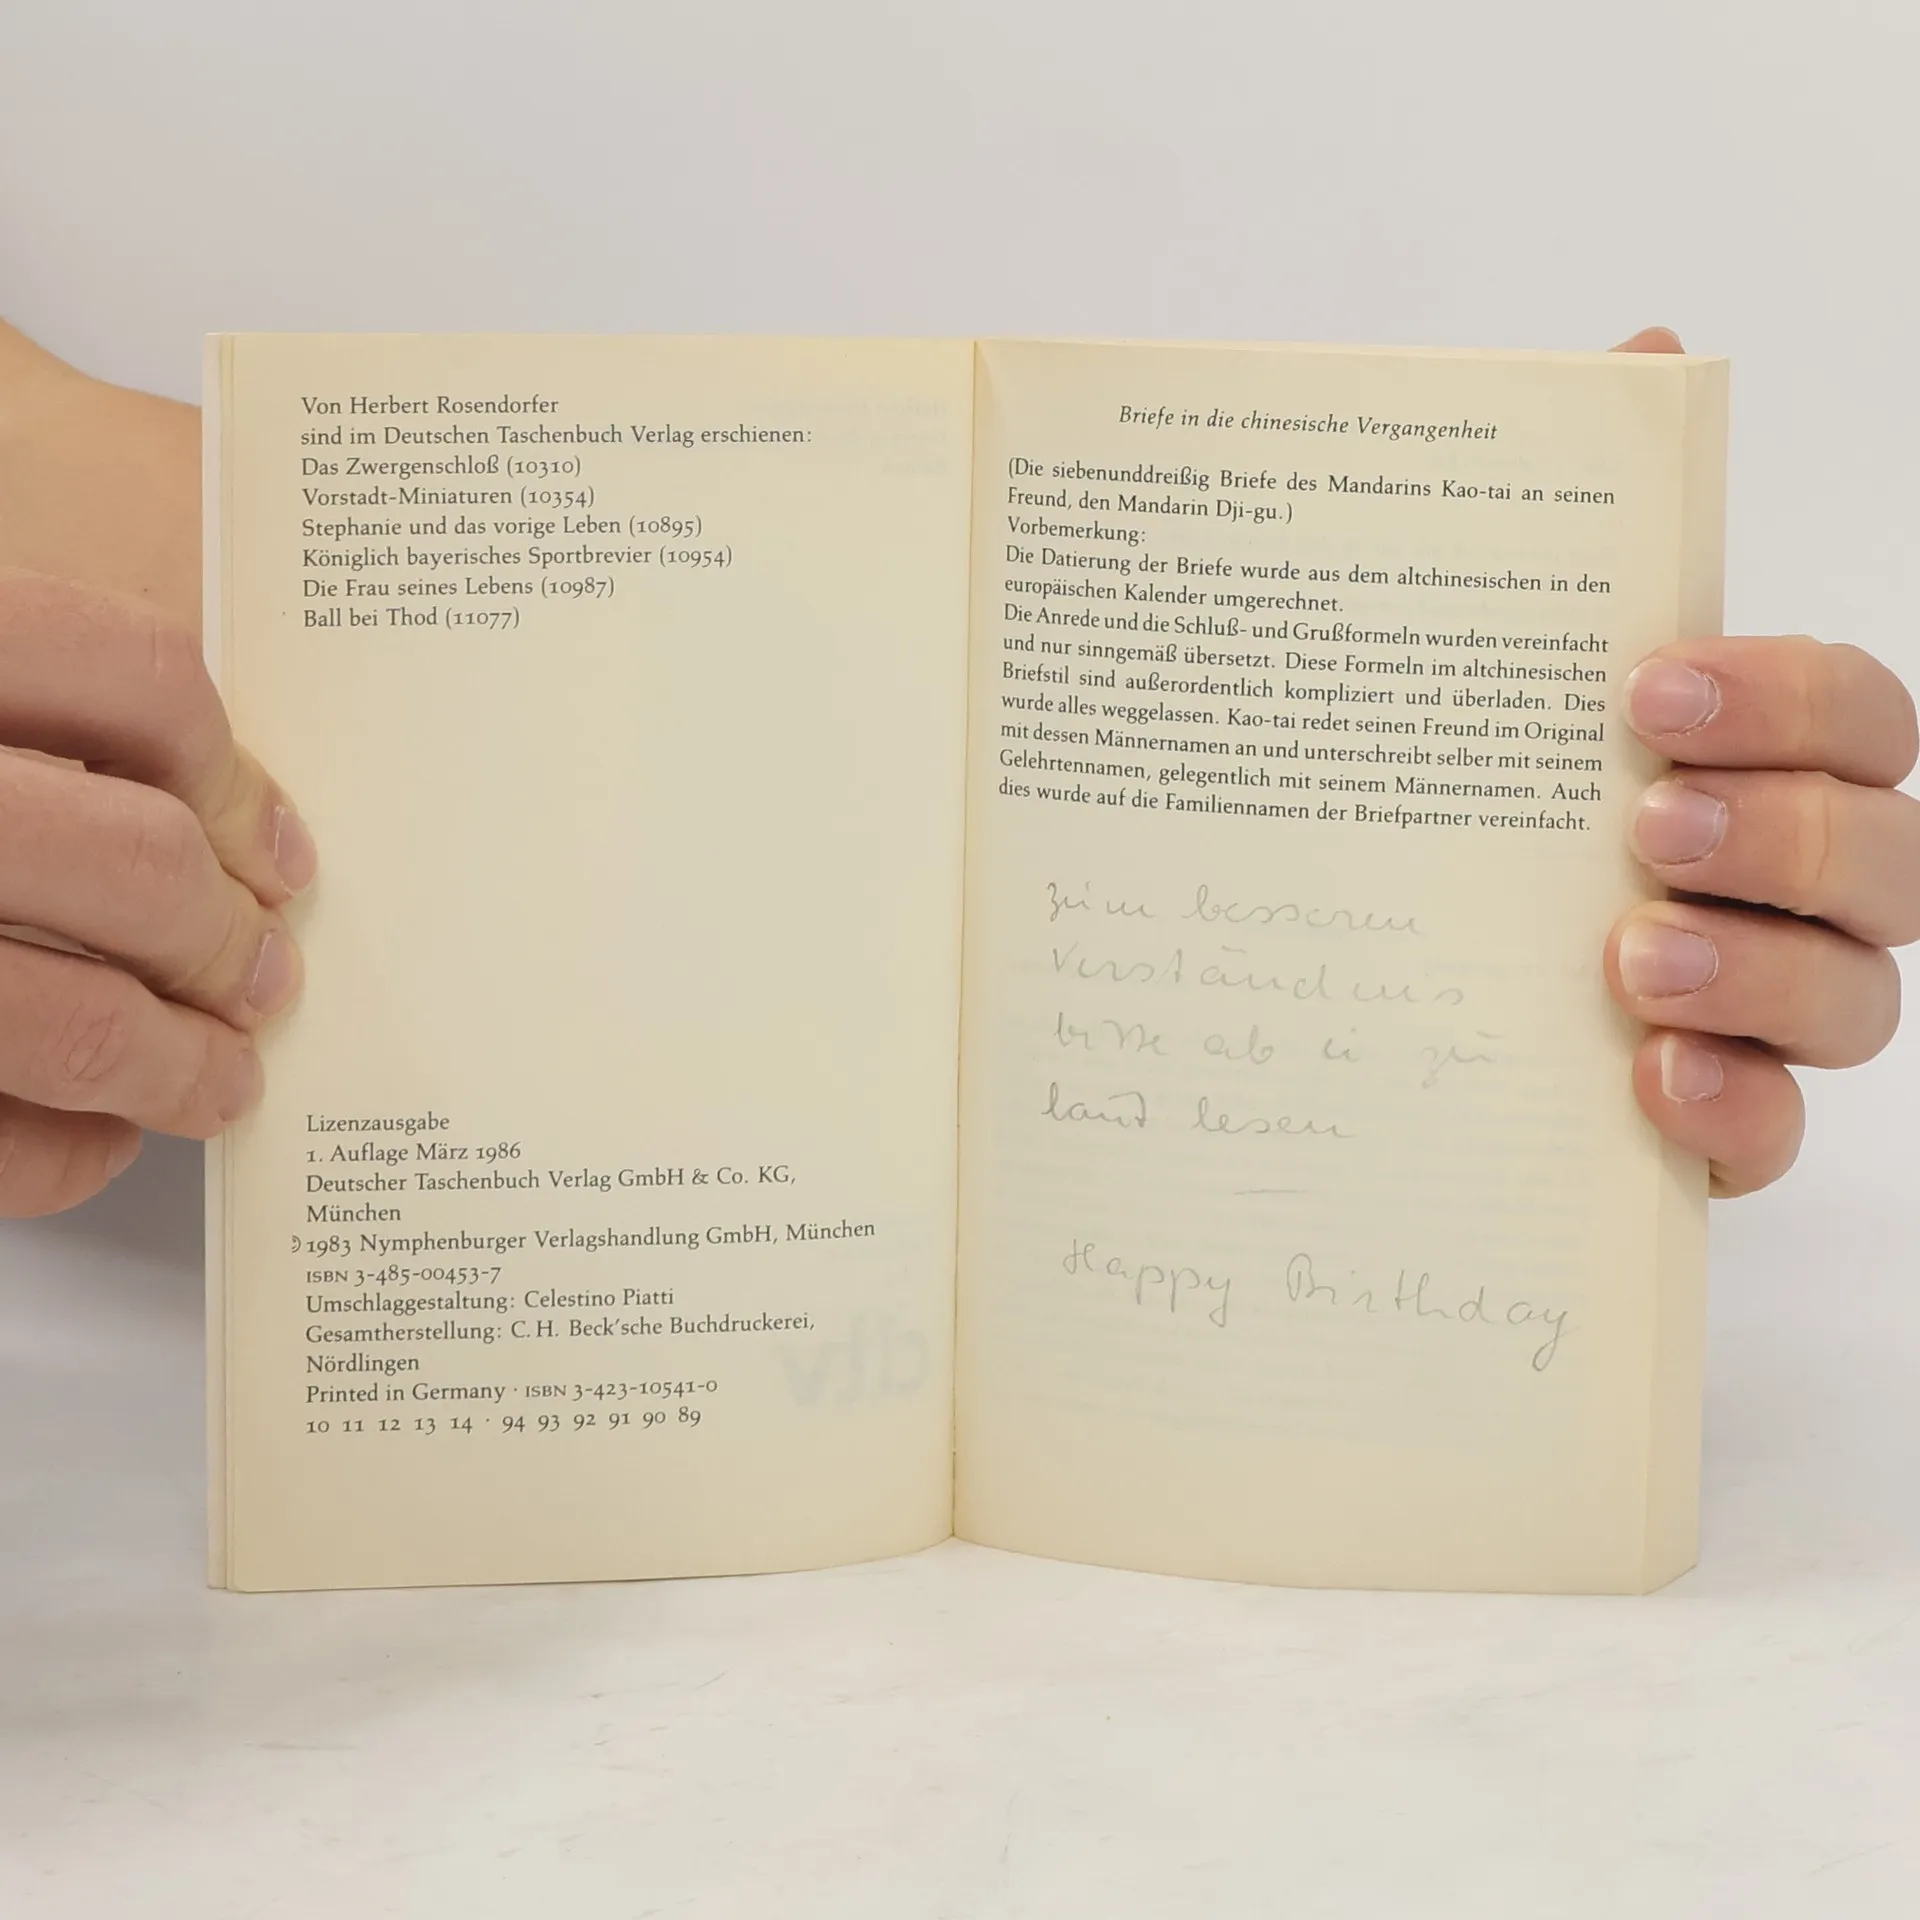 Von Herbert Rosendorfer
sind im Deutschen Taschenbuch Verlag erschienen:
Das Zwergenschloß (10310)
Vorstadt-Miniaturen (10354)
Stephanie und das vorige Leben (10895)
Königlich bayerisches Sportbrevier (10954)
Die Frau seines Lebens (10987)
Ball bei Thod (11077)
Lizenzausgabe
1. Auflage März 1986
Deutscher Taschenbuch Verlag GmbH & Co. KG,
München
© 1983 Nymphenburger Verlagshandlung GmbH, München
ISBN 3-485-00453-7
Umschlaggestaltung: Celestino Piatti
Gesamtherstellung: C. H. Beck'sche Buchdruckerei,
Nördlingen
Printed in Germany · ISBN 3-423-10541-0
10 11 12 13 14 · 94 93 92 91 90 89
Briefe in die chinesische Vergangenheit
(Die siebenunddreißig Briefe des Mandarins Kao-tai an seinen
Freund, den Mandarin Dji-gu.)
Vorbemerkung:
Die Datierung der Briefe wurde aus dem altchinesischen in den
europäischen Kalender umgerechnet.
Die Anrede und die Schluß- und Grußformeln wurden vereinfacht
und nur sinngemäß übersetzt. Diese Formeln im altchinesischen
Briefstil sind außerordentlich kompliziert und überladen. Dies
wurde alles weggelassen. Kao-tai redet seinen Freund im Original
mit dessen Männernamen an und unterschreibt selber mit seinem
Gelehrtennamen, gelegentlich mit seinem Männernamen. Auch
dies wurde auf die Familiennamen der Briefpartner vereinfacht.
zum besseren
Verständnis
bitte ab u zu
laut lesen
Happy Birthday